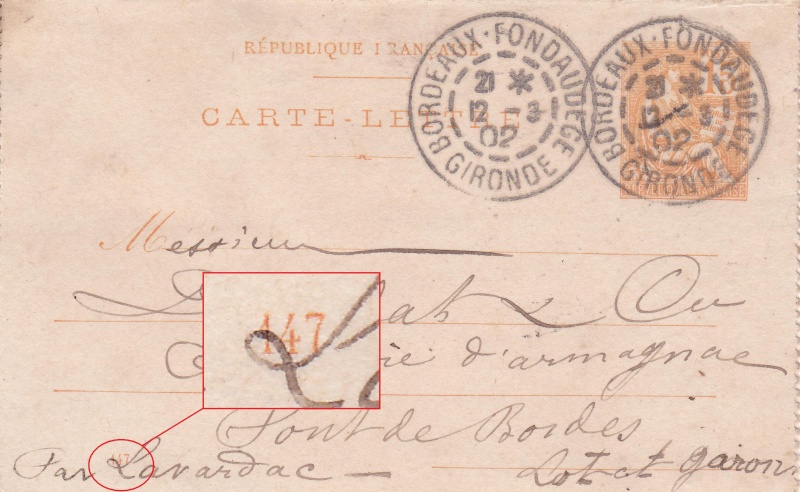 RÉPUBLIQUE FRANÇAISE
CARTE-LETTRE
BORDEAUX-FONDAUDEGE
21 *
12 - 3
02
GIRONDE
BORDEAUX-FONDAUDEGE
21 *
12 - 3
02
GIRONDE
15
Messieurs
& Cie
d'armagnac
147
Pont de Bordes
147
Par Lavardac — Lot et garon